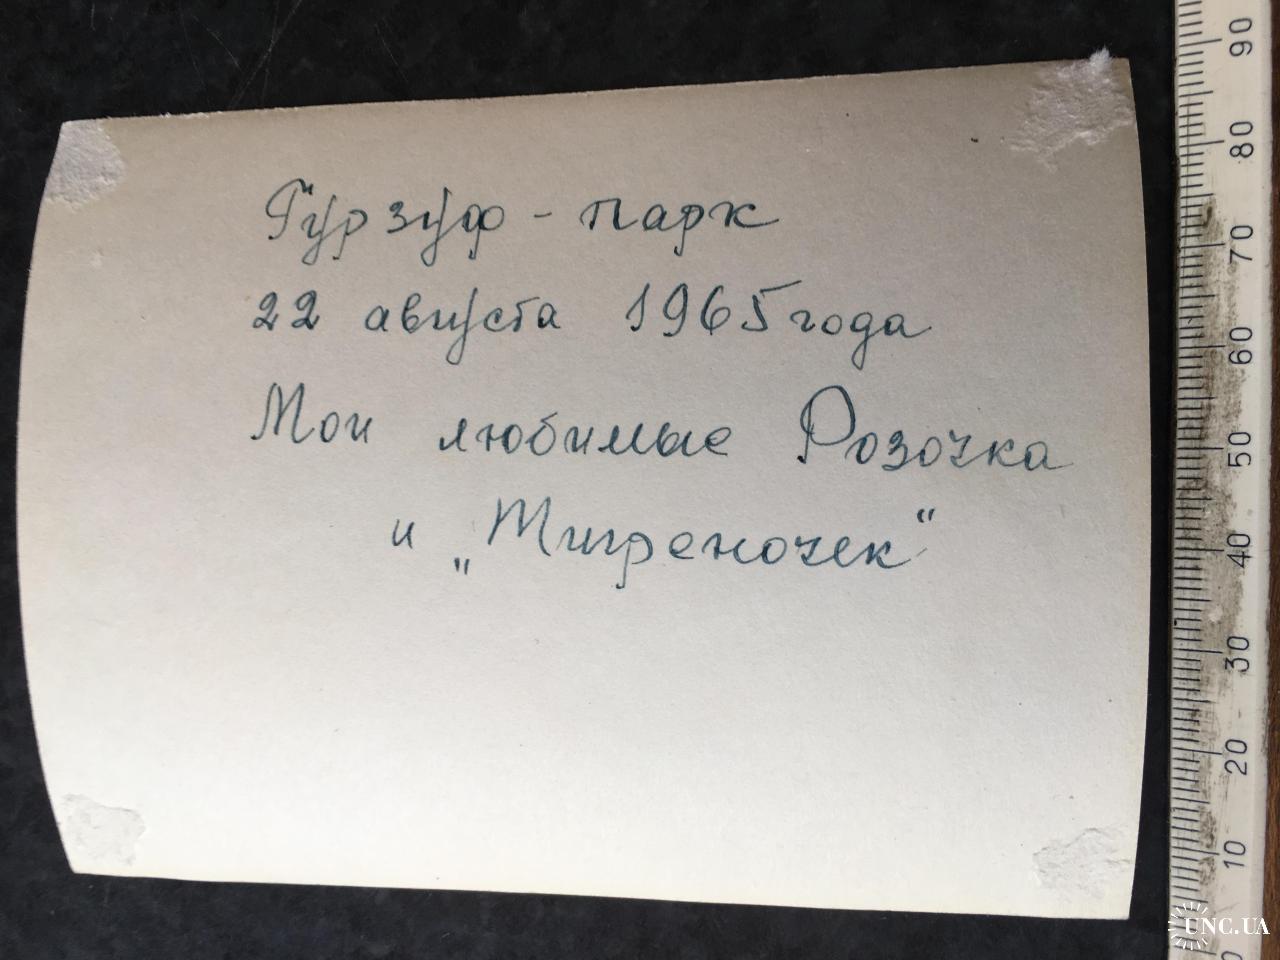 Гурзуф - парк
22 августа 1965 года
Мои любимые Розочка
и „Тигреночек“
90
80
70
60
50
40
30
20
10
0
UNC.UA